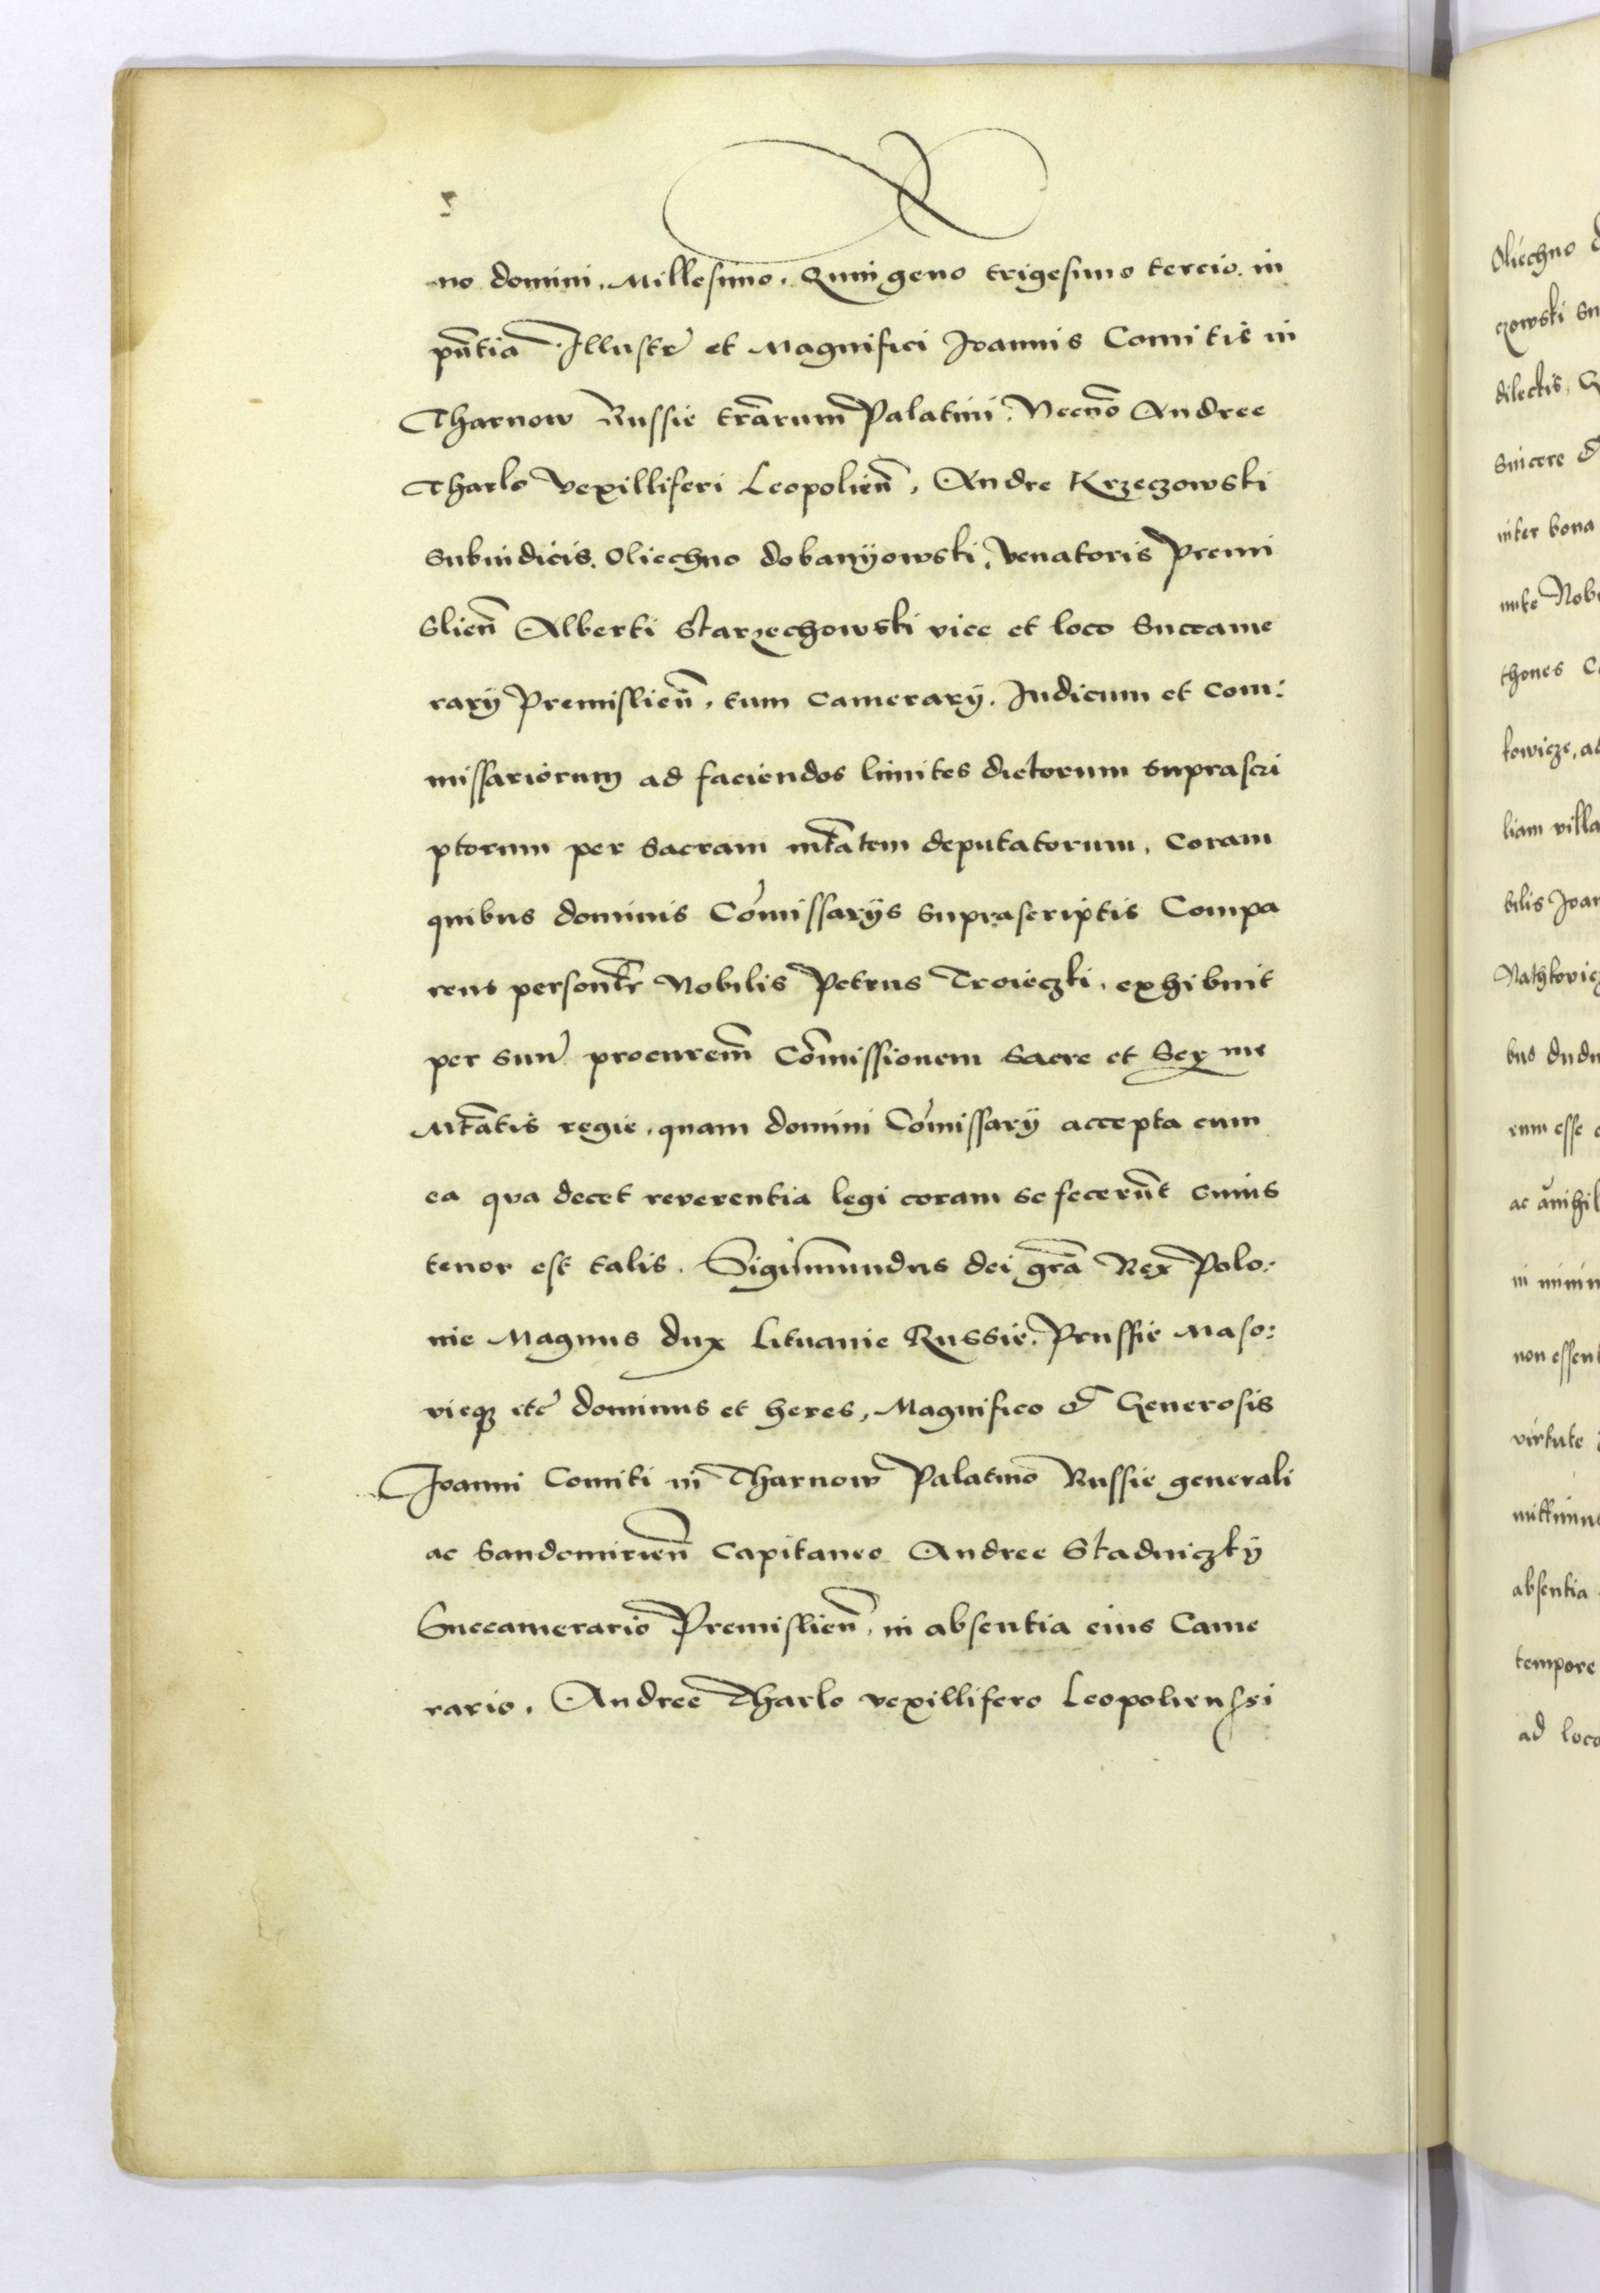 no domini. Millesimo. Quingeno trigesimo tercio. in
pñtia Illustr et Magnifici Joannis Comitis in
Tharnow Russie trãrum Palatini. Necnõ Andree
Tharlo Vexilliferi Leopolieñ, Andre Krzeczowski
Subiudicis. Oliechno dobanÿowski, Venatoris Premi
slieñ Alberti Starzechowski vice et loco Succame
rarÿ Premislieñ. tum camerarÿ. Judicum et com:
missariorum ad faciendos limites dictorum suprascri
ptorum per sacram mtãtem deputatorum, coram
quibus dominis Cõmissarÿs suprascriptis Compa
rens personlr Nobilis Petrus Troieczki. exhibuit
per suũ procurem̃ Cõmissionem Sacre et Ser me
Mtãtis regie. quam domini Cõmissarÿ accepta cum
ea qva decet reverentia legi coram se fecerũt cuius
tenor est talis. Sigism̃undus dei grã Rex Polo:
nie Magnus dux Lituanie Russie. Prussie Maso:
vieq; etc dominus et heres, Magnifico & Generosis
Joanni Comiti in Tharnow Palatino Russie generali
ac Sandomirieñ Capitaneo Andree Stadniczkÿ
Succamerario Premislieñ, in absentia eius Came
rario. Andree Tharlo vexillifero Leopoliensi
Oliechno
czowski su
dilectis. G
sincere &
inter bona
thones
kowicze, ad
liam villa
bilis Joan
bus
eum esse
non essent
virtute
absentia
tempore
ad loc